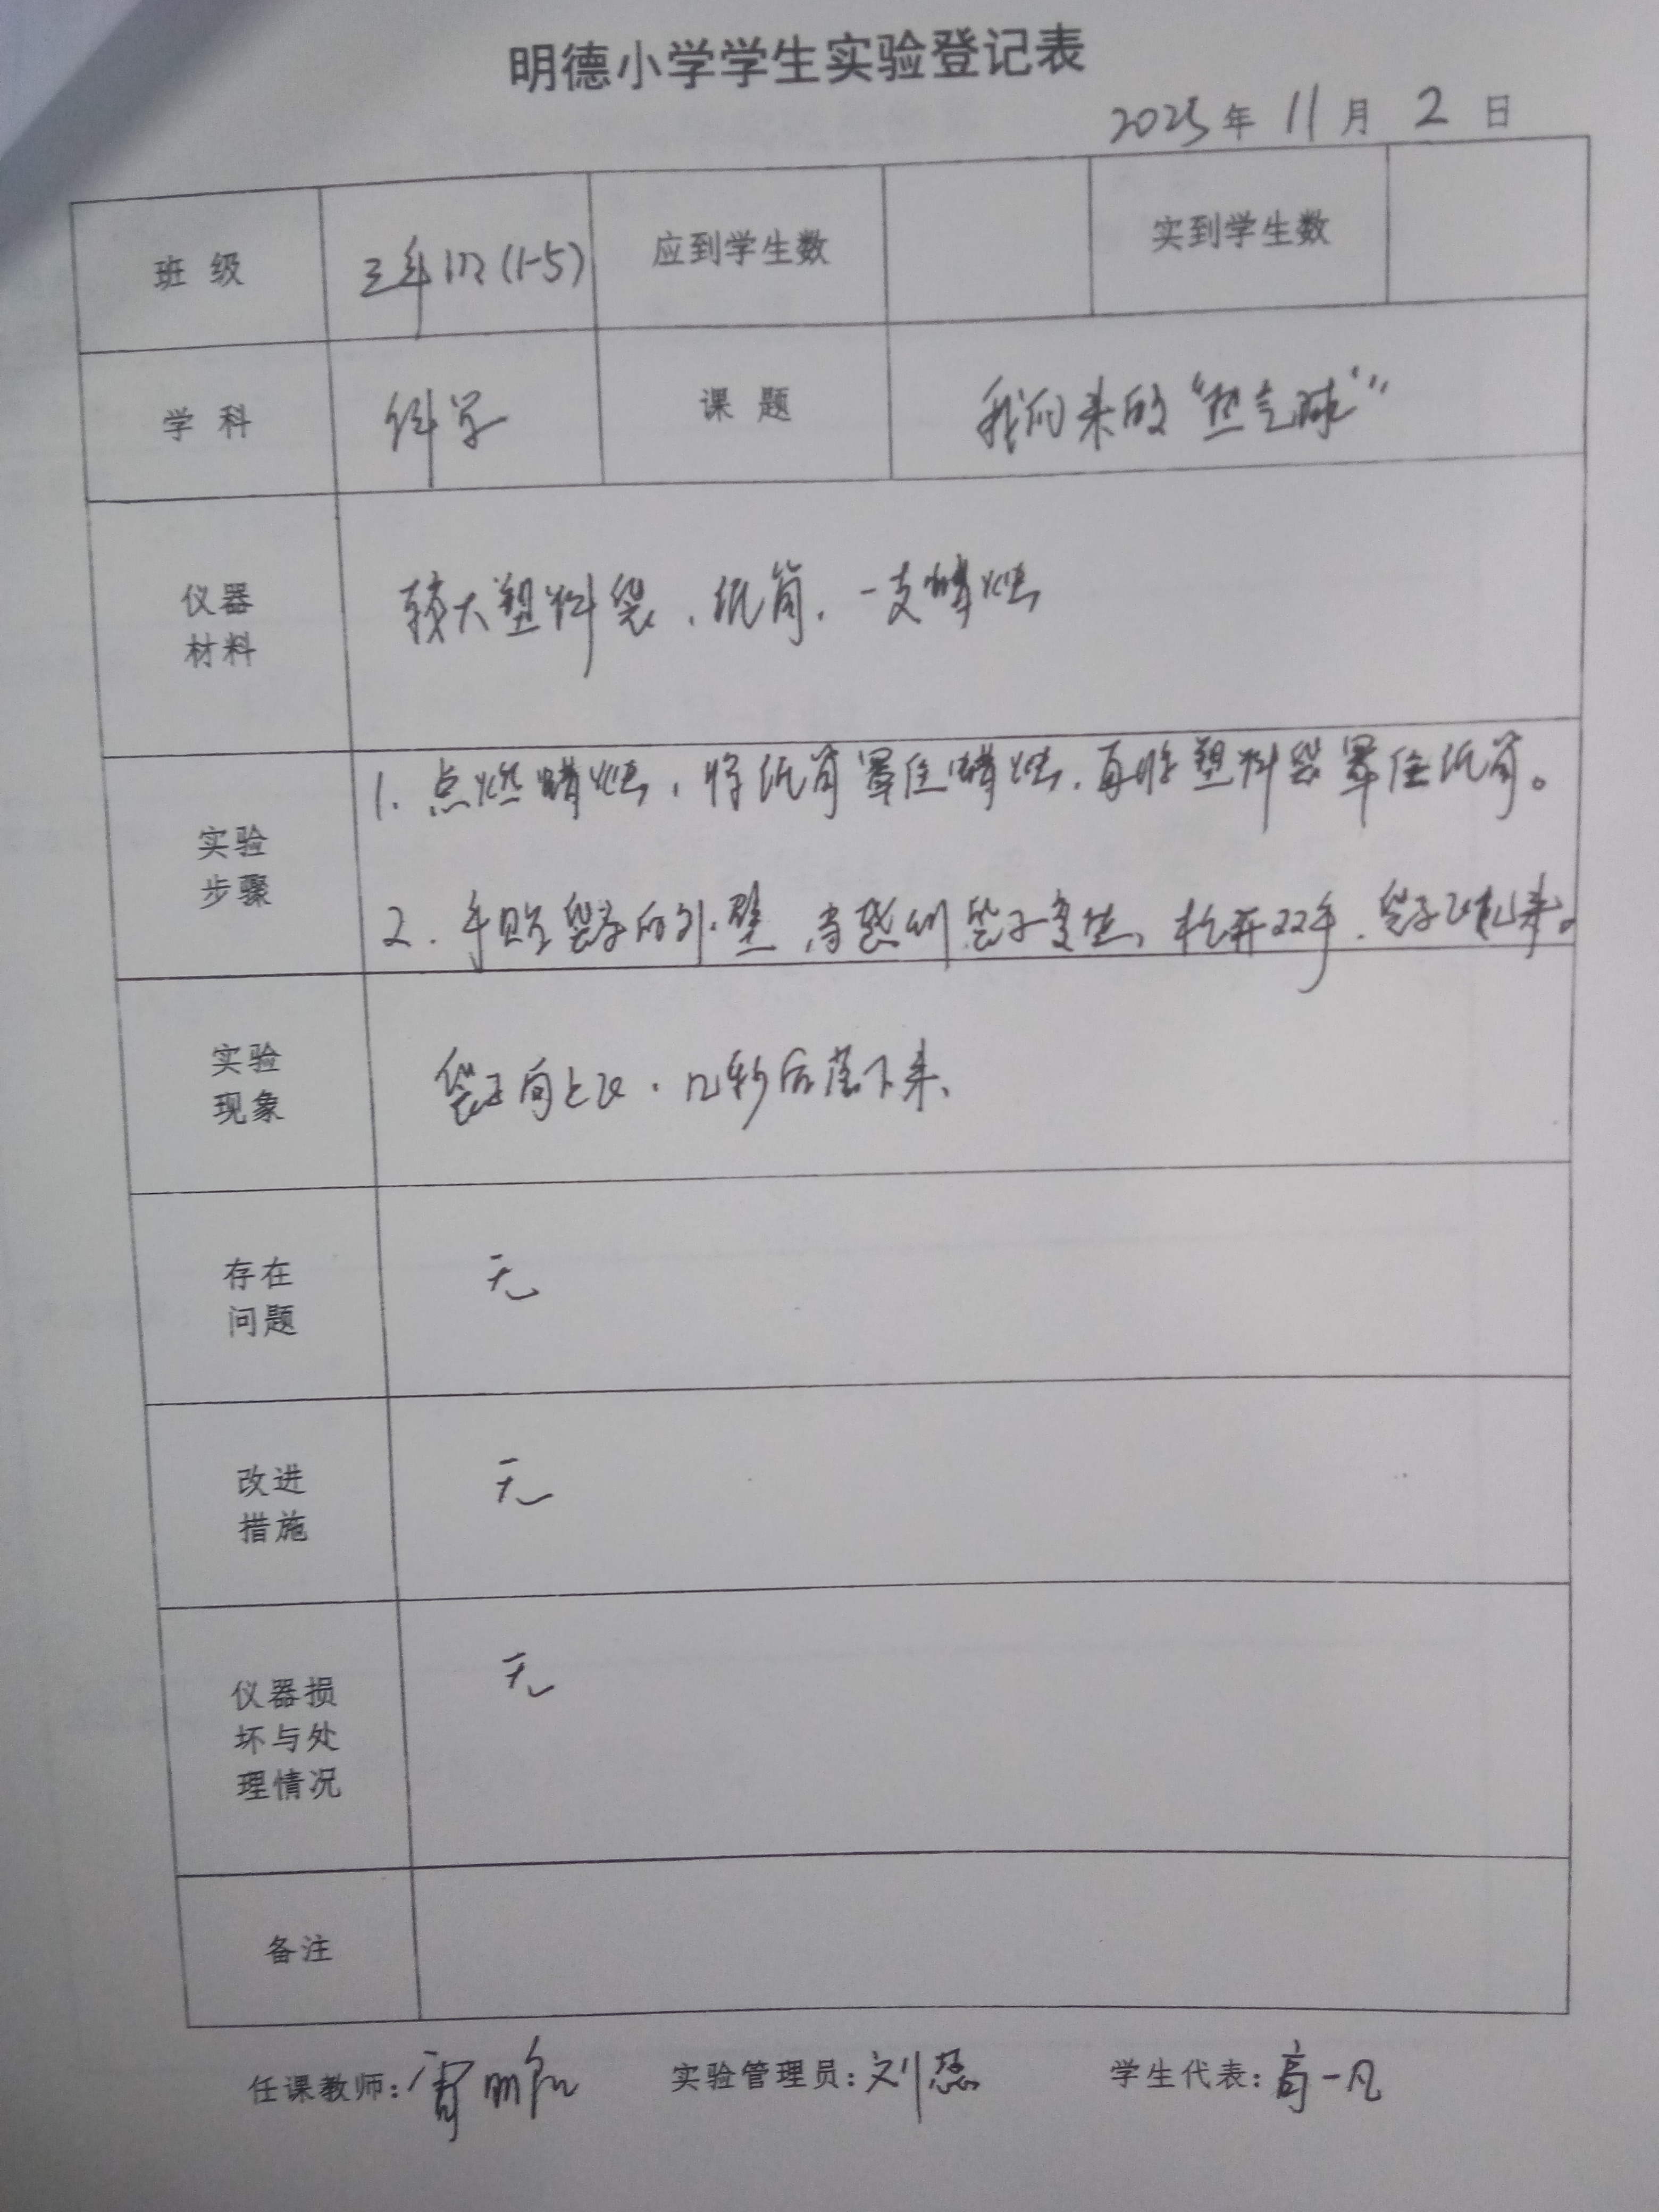 明德小学学生实验登记表
2025年 11月 2日
班 级 三年级(1-5) 应到学生数 实到学生数
学 科 科学 课 题 我们来的“热气球”
仪器
材料
较大塑料袋、纸筒、一支蜡烛
实验
步骤
1. 点燃蜡烛，将纸筒罩住蜡烛，再将塑料袋罩住纸筒。
2. 手贴袋子的外壁，当感到袋子变热，松开双手，袋子飞起来。
实验
现象
袋子向上飞，几秒后落下来、
存在
问题
无
改进
措施
无
仪器损
坏与处
理情况
无
备注
任课教师: 实验管理员:刘慧 学生代表:高一凡